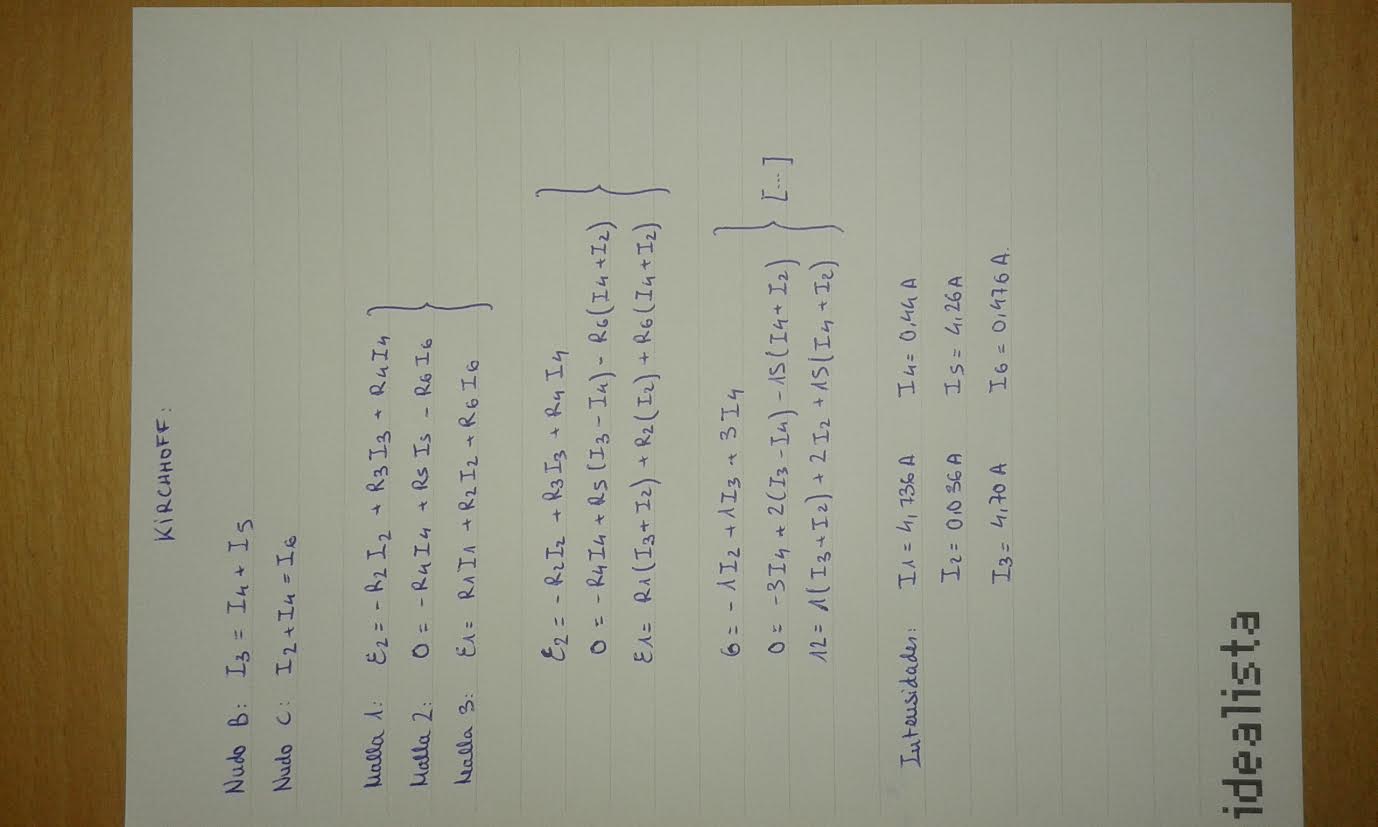 KIRCHHOFF:
Nudo B: I3 = I4 + I5
Nudo C: I2 + I4 = I6
Malla 1: Ɛ2 = -R2 I2 + R3 I3 + R4 I4
Malla 2: 0 = -R4 I4 + R5 I5 - R6 I6
Malla 3: Ɛ1 = R1 I1 + R2 I2 + R6 I6
Ɛ2 = -R2 I2 + R3 I3 + R4 I4
0 = -R4 I4 + R5 (I3 - I4) - R6 (I4 + I2)
Ɛ1 = R1 (I3 + I2) + R2 (I2) + R6 (I4 + I2)
6 = -1 I2 + 1 I3 + 3 I4
0 = -3 I4 + 2 (I3 - I4) - 15 (I4 + I2) [...]
12 = 1 (I3 + I2) + 2 I2 + 15 (I4 + I2)
Intensidades: I1 = 4,736 A I4 = 0,44 A
I2 = 0,036 A I5 = 4,26 A
I3 = 4,70 A I6 = 0,476 A.
idealista